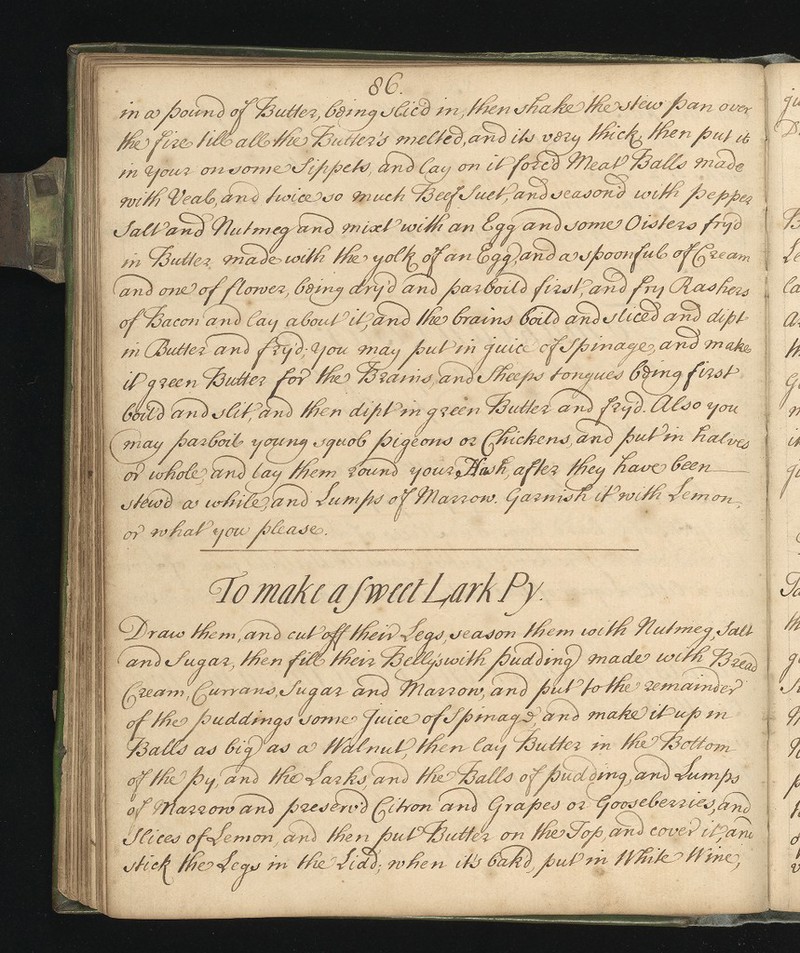 86.
in a pound of Butter, being slic'd in, then shake the stew pan over
the fire till all the Butter's melted, and its very thick, then put it
in your on some Sippets, and lay on it forc'd Meat Balls made
with Veal, and twice so much Beef Suet, and season'd with pepper
Salt and Nutmeg and mixt with an Egg and some Oisters fry'd
in Butter made with the yolk of an Egg, and a spoonful of Cream
and one of flower, being dry'd and parboild first, and fry Rashers
of Bacon and lay about it, and the brains boild and sliced and dipt
in Butter and fryd; you may put in juice of Spinage, and make
it green Butter for the Brains, and Sheeps tongues being first
boild and slit, and then dipt in green Butter and fry'd. Also you
may parboil young squob pigeons or Chickens, and put in halves
or whole, and lay them round your Hash, after they have been
stew'd a while, and Lumps of Marrow. Garnish it with Lemon,
or what you please.
To make a sweet Lark Py.
Draw them, and cut off their Legs, season them with Nutmeg, Salt
and Sugar, then fill their Bellys with pudding made with Bread
Cream, Currans, Sugar and Marrow, and put to the remainder
of the puddings some juice of Spinage, and make it up in
Balls as big as a Walnut, then lay Butter in the Bottom
of the Py, and the Larks, and the Balls of pudding, and Lumps
of Marrow and preserv'd Citron and Grapes or Gooseberries, and
Slices of Lemon, and then put Butter on the Top, and cover it, and
stick the Legs in the Lidd; when it's bak'd, put in White Wine,